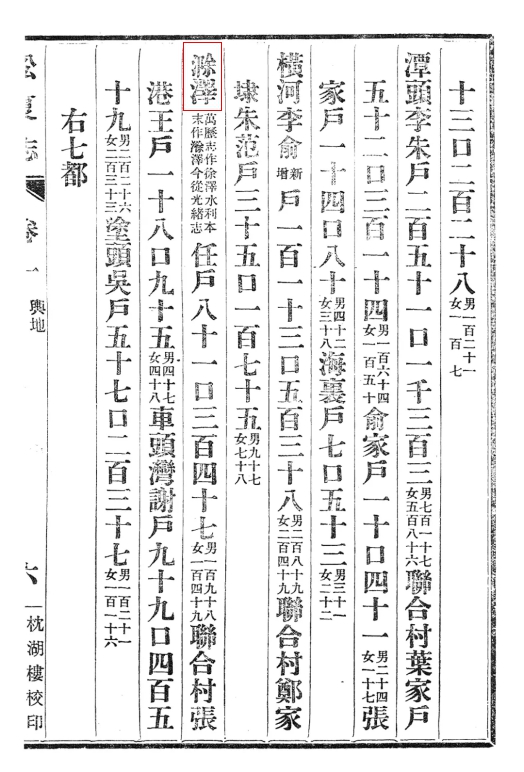 十三口二百二十八男一百二十一女一百七
潭頭李朱戶二百五十一口一千三百三男七百一十七女五百八十六聯合村葉家戶
五十二口三百一十四男一百六十四女一百五十俞家戶一十口四十一男二十四女一十七張
家戶一十四口八十男四十二女三十八海裏戶七口五十三男三十一女二十二
橫河李俞新增戶一百一十三口五百三十八男二百八十九女二百四十九聯合村鄭家
埭朱范戶三十五口一百七十五男九十七女七十八
滁澤萬歷志作徐澤水利本末作滁澤今從光緒志任戶八十一口三百四十七男一百九十八女一百四十九聯合村張
港王戶一十八口九十五男四十七女四十八車頭灣謝戶九十九口四百五
十九男二百二十六女二百三十三塗頭吳戶五十七口二百三十七男一百二十一女一百一十六
右七都
松夏志 卷一 輿地 六 枕湖樓校印